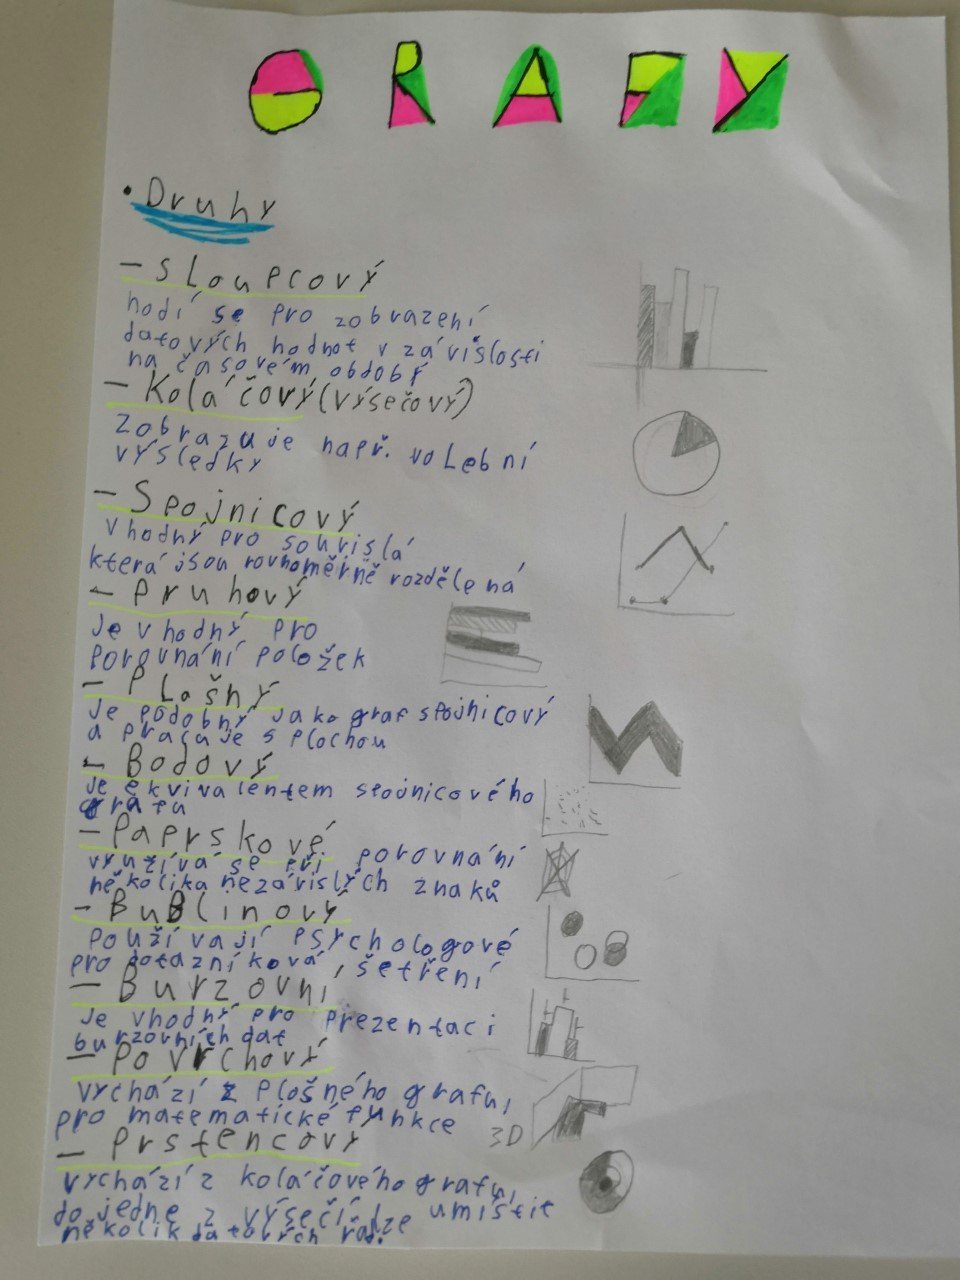 GRAFY
• Druhy
- Sloupcový
hodí se pro zobrazení
datových hodnot v závislosti
na časovém obdobý
- Koláčový (výsečový)
Zobrazuje např. volební
výsledky
- Spojnicový
vhodný pro souvislá
která jsou rovnoměrně rozdělená
- Pruhový
Je vhodný pro
porovnání položek
- Plošný
Je podobný jako graf spojnicový
a pracuje s plochou
- Bodový
je ekvivalentem spojnicového
grafu
- Paprskové
využívá se při porovnání
několika nezávislých znaků
- Bublinový
Používají psychologové
pro dotazníková šetření
- Burzovní
Je vhodný pro prezentaci
burzovních dat
- Povrchový
Vychází z plošného grafu,
pro matematické funkce
3D
- Prstencový
Vychází z koláčového grafu,
do jedné z výsečí lze umístit
několik datových řad.